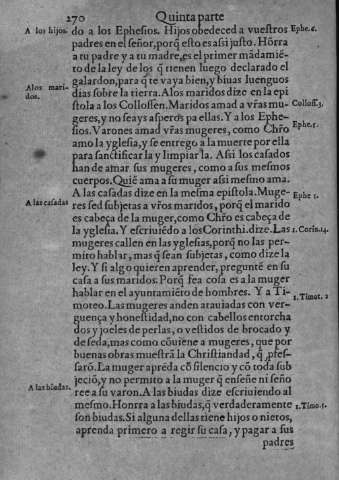 270 Quinta parte
A los hijos.
do a los Ephesios. Hijos obedeced a vuestros
Ephe. 6.
padres en el señor, porq̃ esto es assi justo. Hõrra
a tu padre y a tu madre, es el primer mãdamiẽ-
to de la ley de los q̃ tienen luego declarado el
galardon, para q̃ te vaya bien, y biuas luenguos
A los mari-
dos.
dias sobre la tierra. A los maridos dize en la epi
stola a los Collossen. Maridos amad a vr̃as mu-
Colloss. 3.
geres, y no seays asperos pa ellas. Y a los Ephe-
sios. Varones amad vr̃as mugeres, como Chr̃o
Ephe. 5.
amo la yglesia, y se entrego a la muerte por ella
para sanctificarla y limpiarla. Assi los casados
han de amar sus mugeres, como a sus mesmos
cuerpos. Quiẽ ama a su muger assi mesmo ama.
A las casadas dize en la mesma epistola. Muge-
Ephe 5.
A las casadas
res sed subjetas a vr̃os maridos, porq̃ el marido
es cabeça de la muger, como Chr̃o es cabeça de
la yglesia. Y escriuiẽdo a los Corinthi. dize. Las
1. Corin. 14.
mugeres callen en las yglesias, porq̃ no las per-
mito hablar, mas q̃ sean subjetas, como dize la
ley. Y si algo quieren aprender, preguntẽ en su
casa a sus maridos. Porq̃ fea cosa es a la muger
hablar en el ayuntamiẽto de hombres. Y a Ti-
1. Timot. 2
moteo. Las mugeres anden atauiadas con ver-
guença y honestidad, no con cabellos entorcha
dos y joeles de perlas, o vestidos de brocado y
de seda, mas como cõuiene a mugeres, que por
buenas obras muestrã la Christiandad, q̃ pfes-
sarõ. La muger aprẽda cõ silencio y cõ toda sub
jeciõ, y no permito a la muger q̃ enseñe ni seño
A las biudas.
ree a su varon. A las biudas dize escriuiendo al
mesmo. Honrra a las biudas, q̃ verdaderamente
1. Timo. 5.
son biudas. Si alguna dellas tiene hijos o nietos,
aprenda primero a regir su casa, y pagar a sus
padres